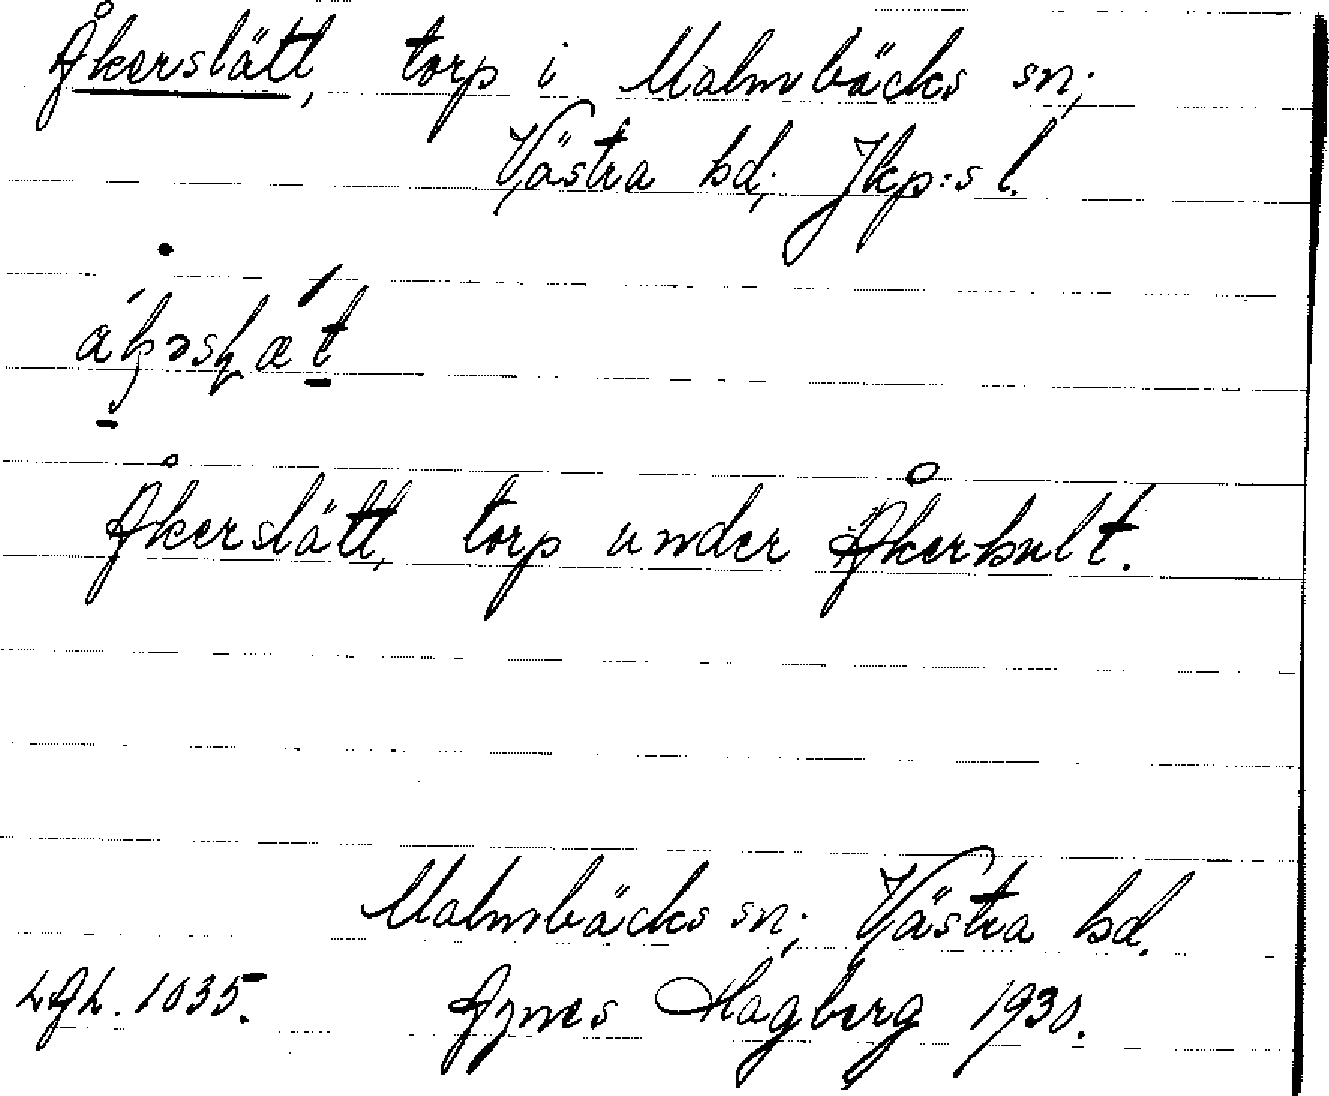 Åkerslätt, torp i Malmbäcks sn;
Västra hd; Jkp:s l.
Åkerslätt, torp under Åkerhult.
Malmbäcks sn; Västra hd.
Agnes Hagberg 1930.